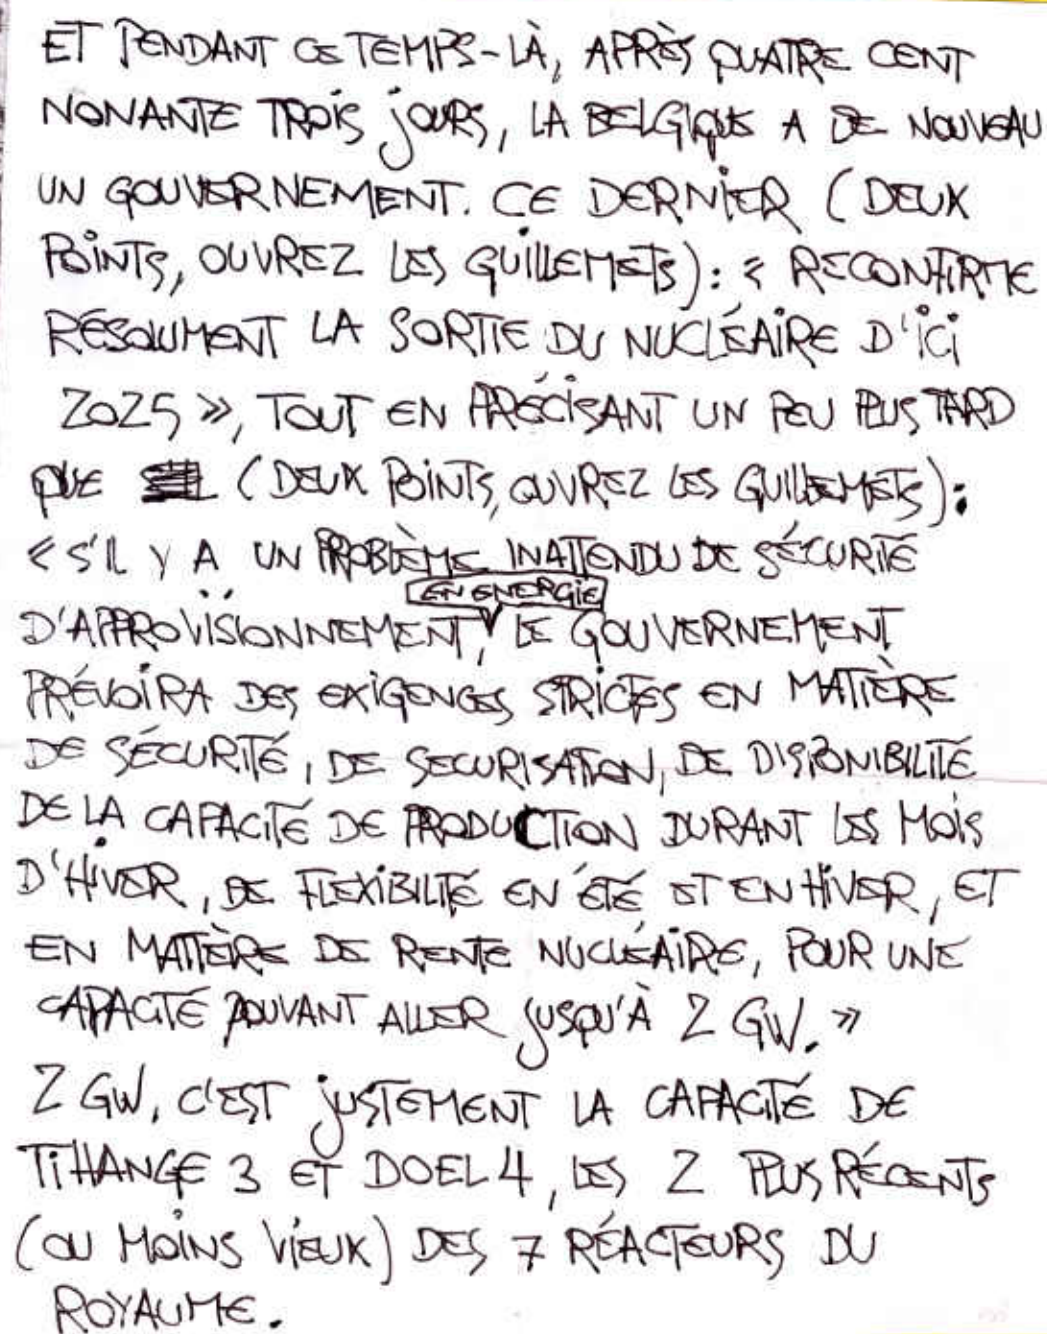 ET PENDANT CE TEMPS-LÀ, APRÈS QUATRE CENT
NONANTE TROIS JOURS, LA BELGIQUE A DE NOUVEAU
UN GOUVERNEMENT. CE DERNIER (DEUX
POINTS, OUVREZ LES GUILLEMETS): « RECONFIRME
RÉSOLUMENT LA SORTIE DU NUCLÉAIRE D'ICI
2025 », TOUT EN PRÉCISANT UN PEU PLUS TARD
QUE (DEUX POINTS, OUVREZ LES GUILLEMETS):
« S'IL Y A UN PROBLÈME INATTENDU DE SÉCURITÉ
D'APPROVISIONNEMENT EN ENERGIE, LE GOUVERNEMENT
PRÉVOIRA DES EXIGENCES STRICTES EN MATIÈRE
DE SÉCURITÉ, DE SECURISATION, DE DISPONIBILITÉ
DE LA CAPACITÉ DE PRODUCTION DURANT LES MOIS
D'HIVER, DE FLEXIBILITÉ EN ÉTÉ ET EN HIVER, ET
EN MATIÈRE DE RENTE NUCLÉAIRE, POUR UNE
CAPACITÉ POUVANT ALLER JUSQU'À 2 GW. »
2 GW, C'EST JUSTEMENT LA CAPACITÉ DE
TIHANGE 3 ET DOEL 4, LES 2 PLUS RÉCENTS
(OU MOINS VIEUX) DES 7 RÉACTEURS DU
ROYAUME.